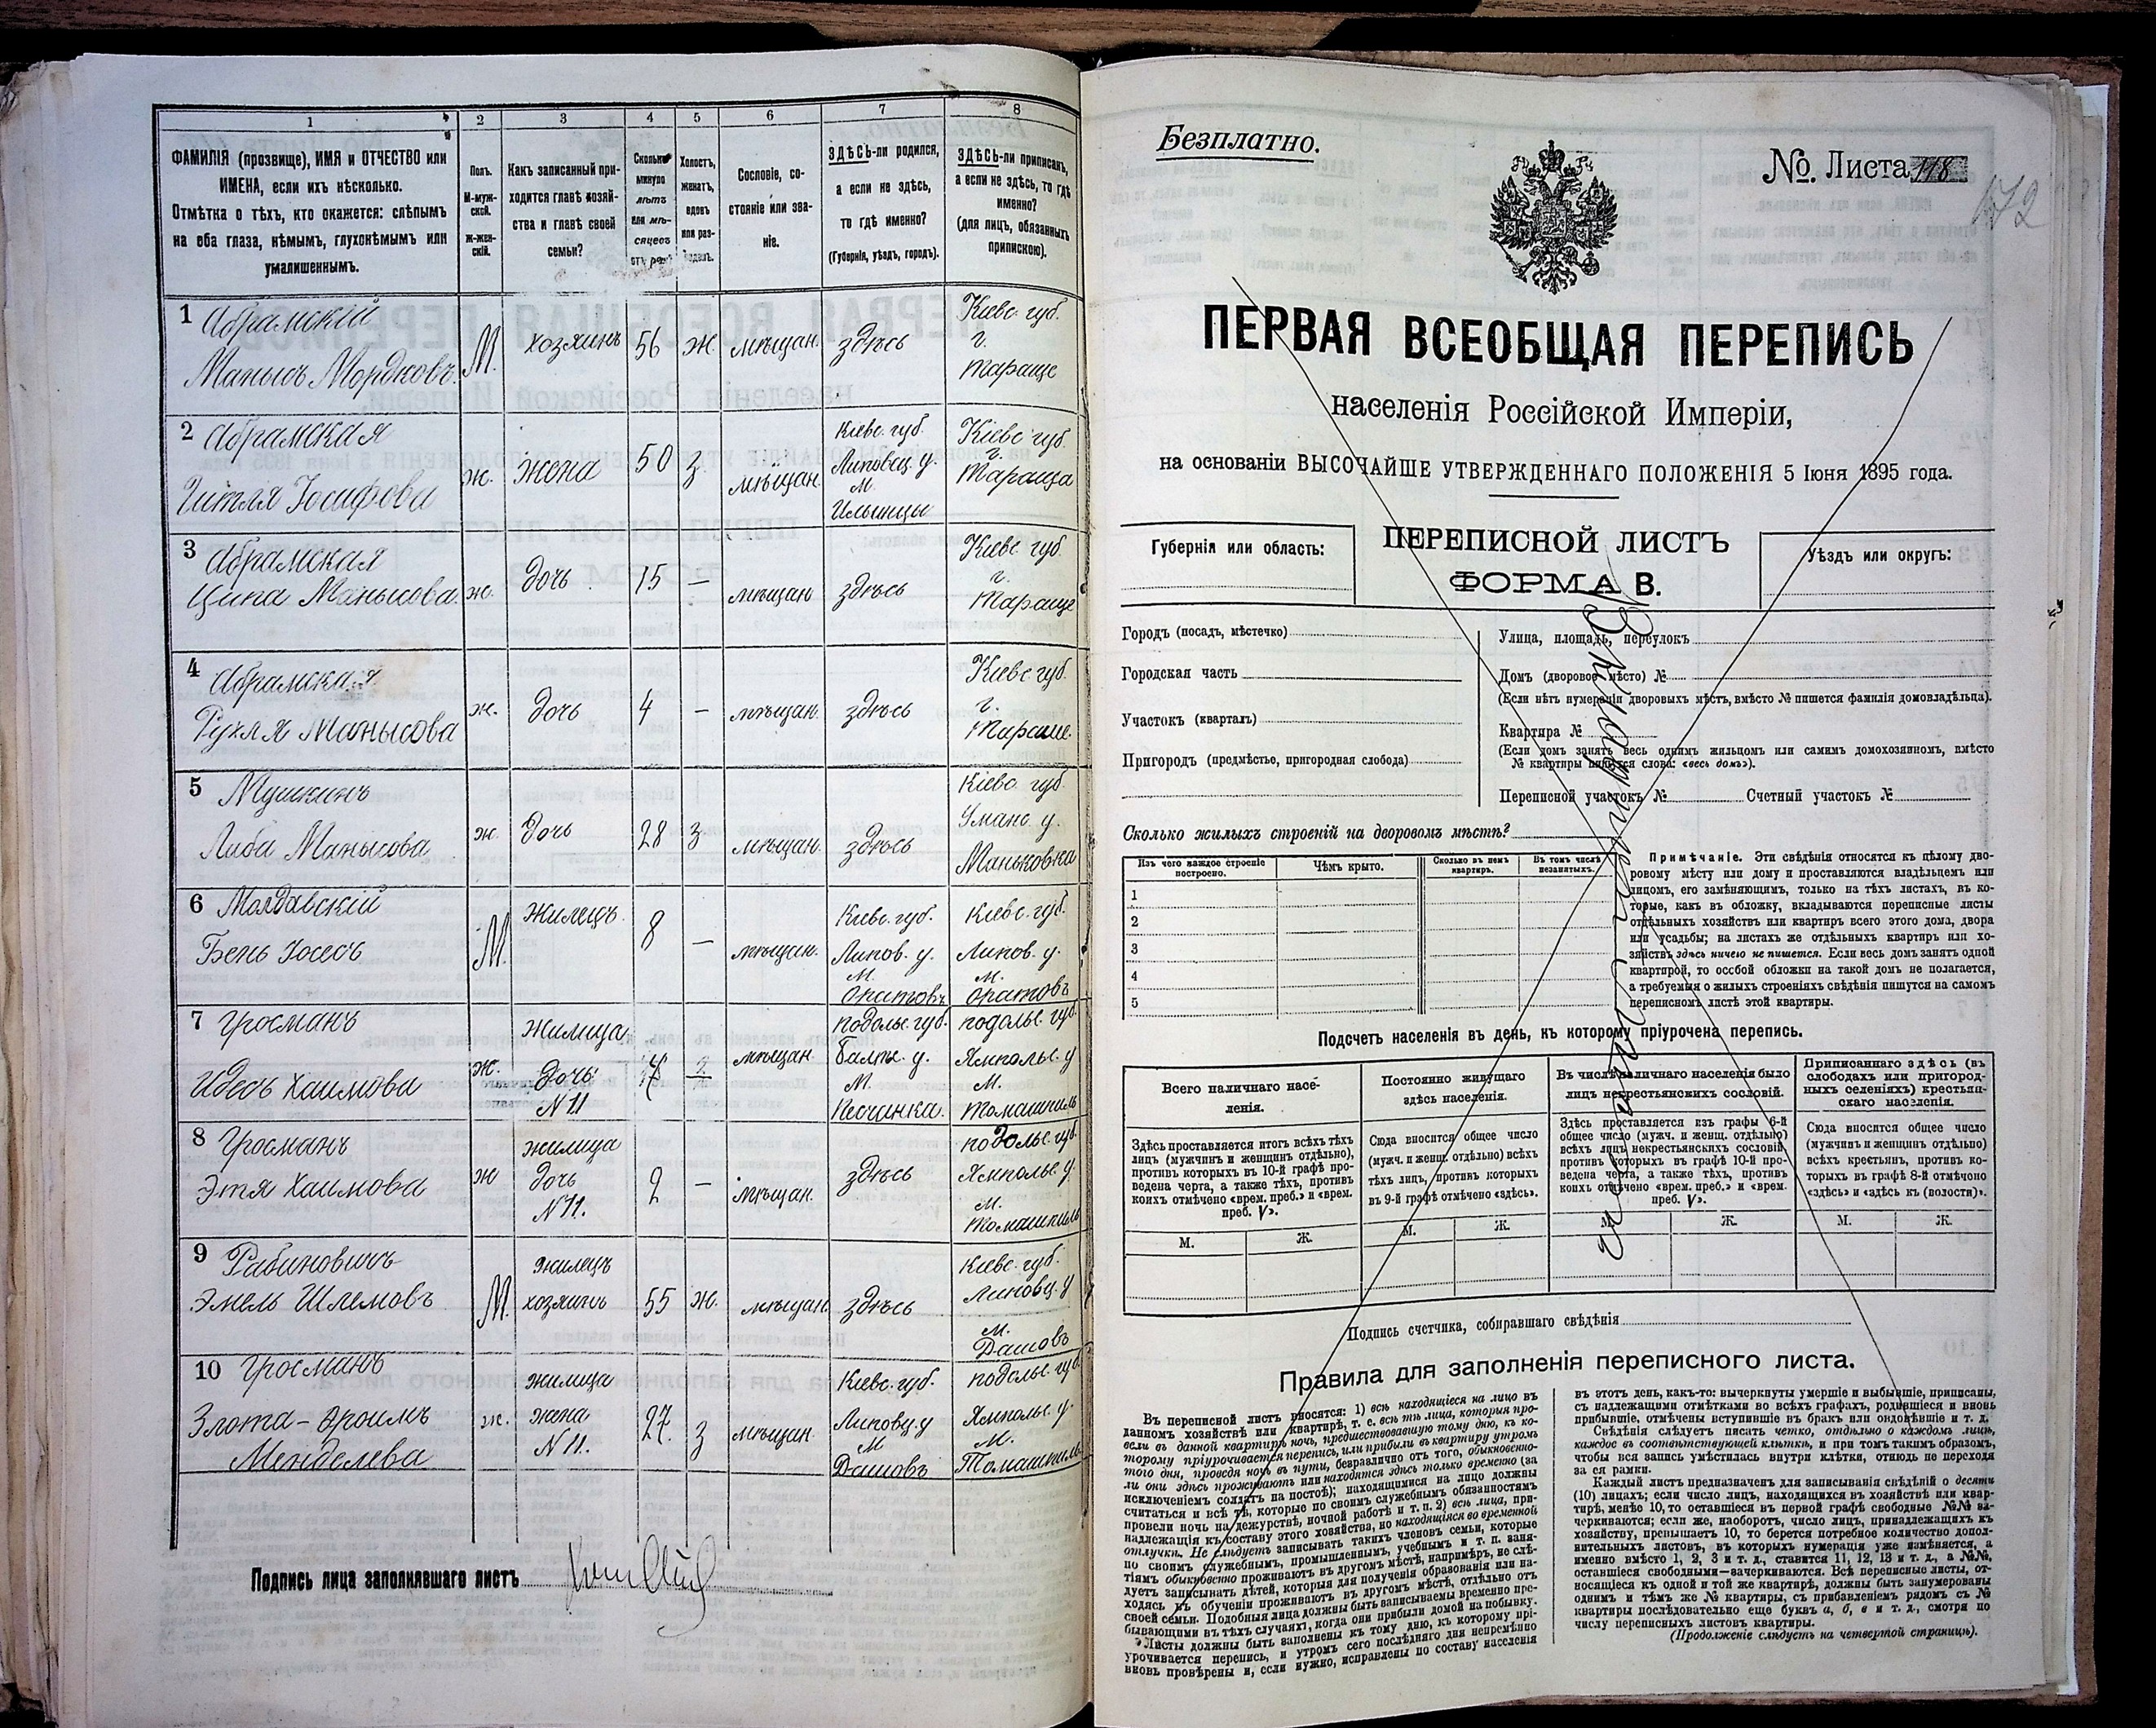 1
2
3
4
5
6
7
8
ФАМИЛІЯ (прозвище), ИМЯ и ОТЧЕСТВО или
ИМЕНА, если ихъ нѣсколько.
Отмѣтка о тѣхъ, кто окажется: слѣпымъ
на оба глаза, нѣмымъ, глухонѣмымъ или
умалишеннымъ.
Полъ.
М-муж-
ской.
Ж-жен-
скій.
Какъ записанный при-
ходится главѣ хозяй-
ства и главѣ своей
семьи?
Сколько
минуло
лѣтъ
или мѣ-
сяцевъ
отъ
Холостъ,
женатъ,
вдовъ
или раз-
Сословіе, со-
стояніе или зва-
ніе.
ЗДѢСЬ-ли родился,
а если не здѣсь,
то гдѣ именно?
(Губернія, уѣздъ, городъ).
ЗДѢСЬ-ли приписанъ,
а если не здѣсь, то гдѣ
именно?
(для лицъ, обязанныхъ
припискою).
1 Абрамскій
Манысъ Мордковъ.
М.
хозяинъ
56
ж.
мѣщан.
здѣсь
Кіевс. губ.
г.
Тараще
2 Абрамская
Гитля Іосифова
ж.
жена
50
з.
мѣщан.
Кіевс. губ.
Липовец. у.
м.
Ильинцы
Кіевс. губ.
г.
Тараща
3 Абрамская
Ципа Манысова.
ж.
дочь
15
—
мѣщан
здѣсь
Кіевс. губ.
г.
Тараще
4 Абрамская
Рухля Манысова
ж.
дочь
4
—
мѣщан.
здѣсь
Кіевс губ.
г.
Тараще
5
Либа Манысова
ж.
дочь
28
з.
мѣщан.
здѣсь
Кіевс. губ.
Уманс. у.
Маньковка
6 Молдавскій
Бень Іосесъ
М.
жилецъ.
8
—
мѣщан.
Кіевс. губ.
Липов. у.
м.
Оратовъ
Кіевс. губ.
Липов. у.
м.
Оратовъ
7 Гросманъ
Идесъ Хаимова
ж.
жилица
дочь
N 11
мѣщан.
подольс. губ.
Балтс. у.
м.
Песчанка.
подольс. губ.
Ямпольс. у
м.
Томашпиль
8 Гросманъ
Этя Хаимова
ж
жилица
дочь
N 11.
2
—
мѣщан.
здѣсь
подольс. губ.
Ямпольс. у.
м.
Томашпиль
9 Рабиновичъ
Эмель Шлемовъ
М.
жилецъ
хозяинъ
55
ж.
мѣщан.
здѣсь
Кіевс. губ.
Липовец. у
м.
Дашовъ
10 Гросманъ
Злота-Фроимъ
Менделева
ж.
жилица
жена
N 11.
27.
з
мѣщан.
Кіевс. губ.
Липовец. у
м
Дашовъ
подольс. губ.
Ямпольс. у.
м.
Томашпиль
Подпись лица заполнявшаго листъ
Безплатно.
№. Листа 118
172
ПЕРВАЯ ВСЕОБЩАЯ ПЕРЕПИСЬ
населенія Россійской Имперіи,
на основаніи ВЫСОЧАЙШЕ УТВЕРЖДЕННАГО ПОЛОЖЕНІЯ 5 Іюня 1895 года.
Губернія или область:
ПЕРЕПИСНОЙ ЛИСТЪ
ФОРМА В.
Уѣздъ или округъ:
Городъ (посадъ, мѣстечко)
Городская часть
Участокъ (кварталъ)
Пригородъ (предмѣстье, пригородная слобода)
Улица, площадь, переулокъ
Домъ (дворовое мѣсто) №
(Если нѣтъ нумераціи дворовыхъ мѣстъ, вмѣсто № пишется фамилія домовладѣльца).
Квартира №
(Если домъ занятъ весь однимъ жильцомъ или самимъ домохозяиномъ, вмѣсто
№ квартиры пишутся слова: «весь домъ»).
Переписной участокъ № Счетный участокъ №
Сколько жилыхъ строеній на дворовомъ мѣстѣ?
Изъ чего каждое строеніе
построено.
Чѣмъ крыто.
Сколько въ немъ
квартиръ.
Въ томъ числѣ
незанятыхъ.
1
2
3
4
5
Примѣчаніе. Эти свѣдѣнія относятся къ цѣлому дво-
ровому мѣсту или дому и проставляются владѣльцемъ или
лицомъ, его замѣняющимъ, только на тѣхъ листахъ, въ ко-
торые, какъ въ обложку, вкладываются переписные листы
отдѣльныхъ хозяйствъ или квартиръ всего этого дома, двора
или усадьбы; на листахъ же отдѣльныхъ квартиръ или хо-
зяйствъ здѣсь ничего не пишется. Если весь домъ занятъ одной
квартирой, то особой обложки на такой домъ не полагается,
а требуемыя о жилыхъ строеніяхъ свѣдѣнія пишутся на самомъ
переписномъ листѣ этой квартиры.
Подсчетъ населенія въ день, къ которому пріурочена перепись.
Всего наличнаго насе-
ленія.
Здѣсь проставляется итогъ всѣхъ тѣхъ
лицъ (мужчинъ и женщинъ отдѣльно),
противъ которыхъ въ 10-й графѣ про-
ведена черта, а также тѣхъ, противъ
коихъ отмѣчено «врем. преб.» и «врем.
преб. V».
Постоянно живущаго
здѣсь населенія.
Сюда вносится общее число
(мужч. и женщ. отдѣльно) всѣхъ
тѣхъ лицъ, противъ которыхъ
въ 9-й графѣ отмѣчено «здѣсь».
Въ числѣ наличнаго населенія было
лицъ некрестьянскихъ сословій.
Здѣсь проставляется изъ графы 6-й
общее число (мужч. и женщ. отдѣльно)
всѣхъ лицъ некрестьянскихъ сословій,
противъ которыхъ въ графѣ 10-й про-
ведена черта, а также тѣхъ, противъ
коихъ отмѣчено «врем. преб.» и «врем.
преб. V».
Приписаннаго здѣсь (въ
слободахъ или пригород-
ныхъ селеніяхъ) крестьян-
скаго населенія.
Сюда вносится общее число
(мужчинъ и женщинъ отдѣльно)
всѣхъ крестьянъ, противъ ко-
торыхъ въ графѣ 8-й отмѣчено
«здѣсь» и «здѣсь къ (волости)».
М.
Ж.
М.
Ж.
М.
Ж.
М.
Ж.
Подпись счетчика, собиравшаго свѣдѣнія
Правила для заполненія переписного листа.
Въ переписной листъ вносятся: 1) всѣ находящіеся на лицо въ
данномъ хозяйствѣ или квартирѣ, т. е. всѣ тѣ лица, которыя про-
вели въ данной квартирѣ ночь, предшествовавшую тому дню, къ ко-
торому пріурочивается перепись, или прибыли въ квартиру утромъ
того дня, проведя ночь въ пути, безразлично отъ того, обыкновенно-
ли они здѣсь проживаютъ или находятся здѣсь только временно (за
исключеніемъ солдатъ на постоѣ); находящимися на лицо должны
считаться и всѣ тѣ, которые по своимъ служебнымъ обязанностямъ
провели ночь на дежурствѣ, ночной работѣ и т. п. 2) всѣ лица, при-
надлежащія къ составу этого хозяйства, но находящіяся во временной
отлучкѣ. Не слѣдуетъ записывать такихъ членовъ семьи, которые
по своимъ служебнымъ, промышленнымъ, учебнымъ и т. п. заня-
тіямъ обыкновенно проживаютъ въ другомъ мѣстѣ, напримѣръ, не слѣ-
дуетъ записывать дѣтей, которыя для полученія образованія или на-
ходясь въ обученіи проживаютъ въ другомъ мѣстѣ, отдѣльно отъ
своей семьи. Подобныя лица должны быть записываемы временно пре-
бывающими въ тѣхъ случаяхъ, когда они прибыли домой на побывку.
Листы должны быть заполнены къ тому дню, къ которому прі-
урочивается перепись, и утромъ сего послѣдняго дня непремѣнно
вновь провѣрены и, если нужно, исправлены по составу населенія
въ этотъ день, какъ-то: вычеркнуты умершіе и выбывшіе, приписаны,
съ надлежащими отмѣтками во всѣхъ графахъ, родившіеся и вновь
прибывшіе, отмѣчены вступившіе въ бракъ или овдовѣвшіе и т. д.
Свѣдѣнія слѣдуетъ писать четко, отдѣльно о каждомъ лицѣ,
каждое въ соотвѣтствующей клѣткѣ, и при томъ такимъ образомъ,
чтобы вся запись умѣстилась внутри клѣтки, отнюдь не переходя
за ея рамки.
Каждый листъ предназначенъ для записыванія свѣдѣній о десяти
(10) лицахъ; если число лицъ, находящихся въ хозяйствѣ или квар-
тирѣ, менѣе 10, то оставшіеся въ первой графѣ свободные №№ за-
черкиваются; если же, наоборотъ, число лицъ, принадлежащихъ къ
хозяйству, превышаетъ 10, то берется потребное количество допол-
нительныхъ листовъ, въ которыхъ нумерація уже измѣняется, а
именно вмѣсто 1, 2, 3 и т. д., ставится 11, 12, 13 и т. д., а №№,
оставшіеся свободными—зачеркиваются. Всѣ переписные листы, от-
носящіеся къ одной и той же квартирѣ, должны быть занумерованы
однимъ и тѣмъ же № квартиры, съ прибавленіемъ рядомъ съ №
квартиры послѣдовательно еще буквъ а, б, в и т. д., смотря по
числу переписныхъ листовъ квартиры.
(Продолженіе слѣдуетъ на четвертой страницѣ).